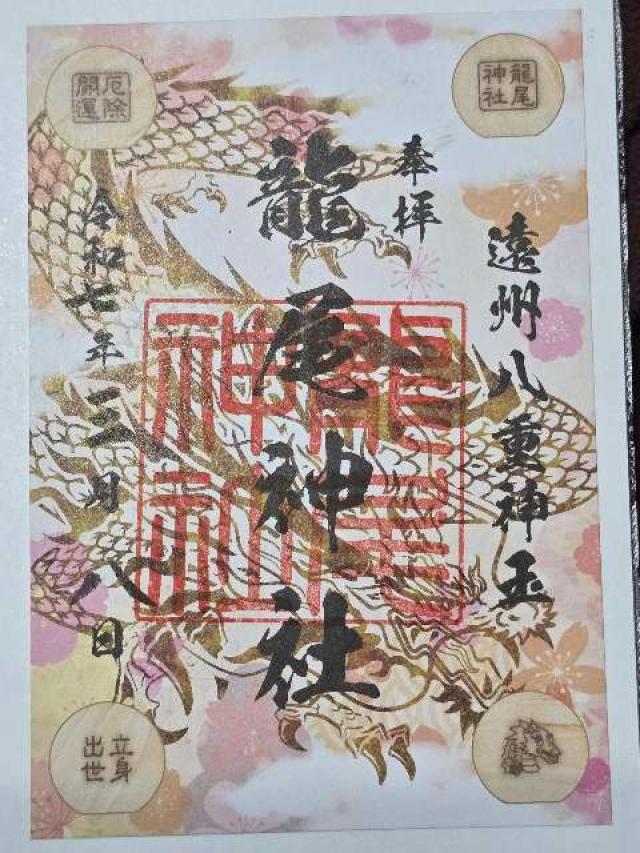 龍尾
神社
遠州八重神玉
奉拝
龍尾神社
龍尾
神社
令和七年三月八日
厄除
開運
立身
出世